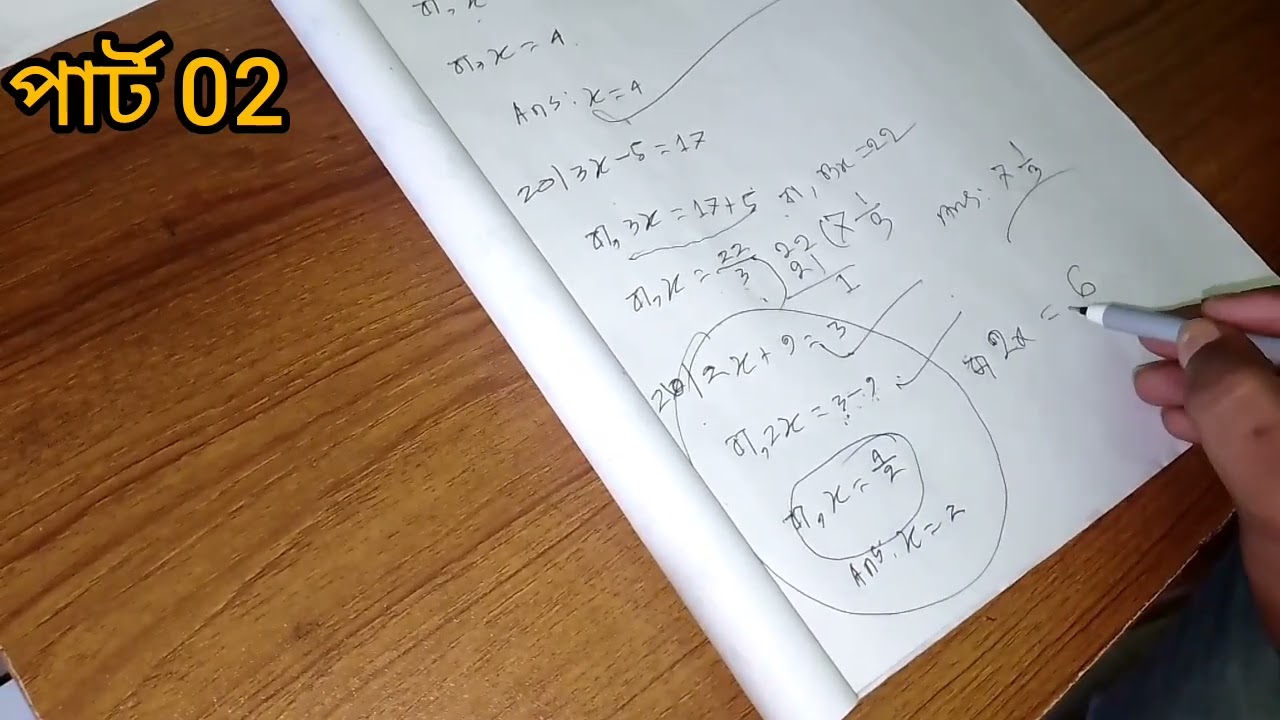 পার্ট 02
বা, x
বা, x = 4
Ans: x = 4
20) 3x - 5 = 17
বা, 3x = 17 + 5 বা, 3x = 22
বা, x = 22/3 ) 22 ( 7 1/3
21
1
Ans: 7 1/3
21) 2x + 9 = 3
বা, 2x = 3 - 9
বা, x = 4/2
Ans: x = 2
বা 2x = 6